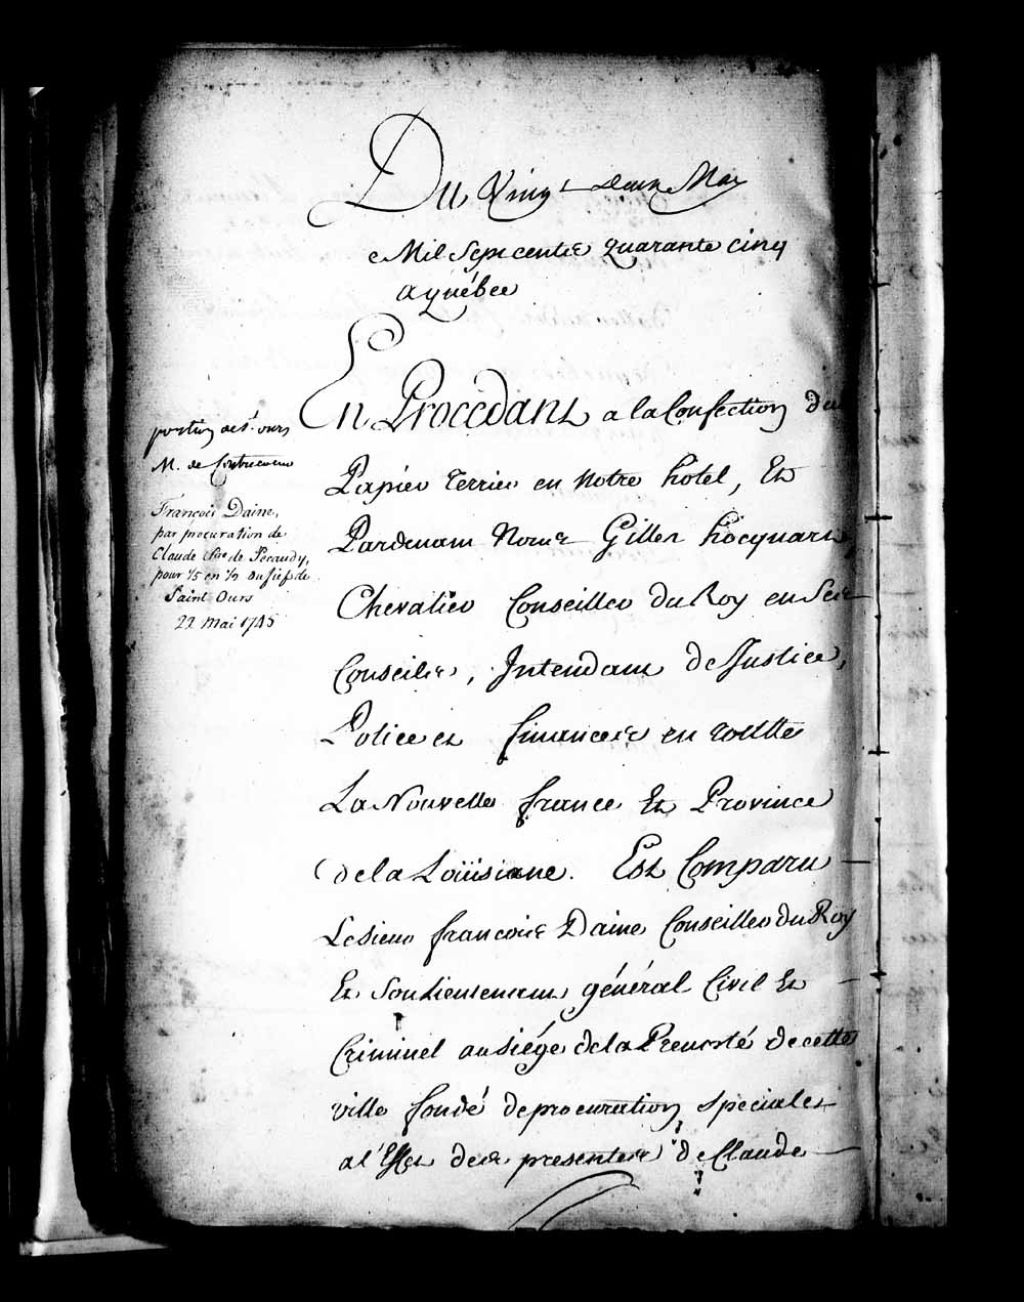 Du Vingt Deux May
Mil Sept centz quarante cinq
a québec
En Procédant a la Confection du
Papier Terrier en Notre hotel, Et
Pardevant Nous Gilles hocquart,
Chevalier Conseiller du Roy en Ses
Conseils, Intendant de Justice,
Police et finances en toutte
La Nouvelle france Et Province
de la Loüisiane. Est Comparu
Le Sieur francois Daine Conseiller du Roy
Et Son Lieutenant général Civil Et
Criminel au Siége de la Prevosté de cette
ville fondé de procuration speciale
a l'Effet des presentes de Claude
portion de St. ours
M. de Contrecoeur
François Daine,
par procuration de
Claude de Pécaudy,
pour 1/5 en 1/2 du fief de
Saint Ours
22 mai 1745